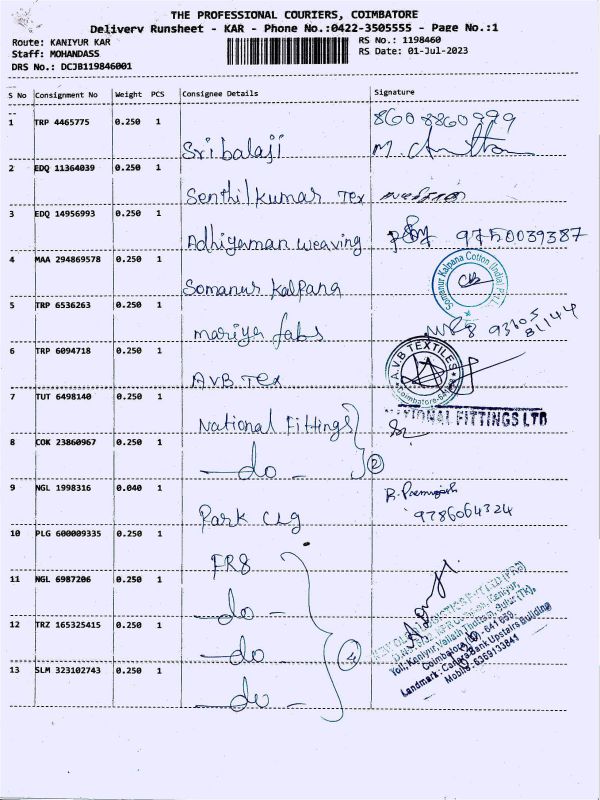 THE PROFESSIONAL COURIERS, COIMBATORE
Delivery Runsheet - KAR - Phone No.:0422-3505555 - Page No.:1
Route: KANIYUR KAR
RS No.: 1198460
Staff: MOHANDASS
RS Date: 01-Jul-2023
DRS No.: DCJB119846001
S No Consignment No Weight PCS Consignee Details Signature
1 TRP 4465775 0.250 1 8608860999
Sri balaji M.
2 EDQ 11364039 0.250 1
Senthil kumar Tex
3 EDQ 14956993 0.250 1
Adhiyaman weaving 9750039387
4 MAA 294869578 0.250 1
Somanur Kalpana Somanur Kalpana Cotton (India) P Ltd.
5 TRP 6536263 0.250 1
mariya fabs 93605 81144
6 TRP 6094718 0.250 1
AVB Tex A.V.B TEXTILES Coimbatore-641
7 TUT 6498140 0.250 1
National Fittings NATIONAL FITTINGS LTD
8 COK 23860967 0.250 1
do 2
9 NGL 1998316 0.040 1
Park Clg 9786064324
10 PLG 600009335 0.250 1
FR8
11 NGL 6987206 0.250 1
do
12 TRZ 165325415 0.250 1
do 4
13 SLM 323102743 0.250 1
do
Coimbatore
Landmark: Canara Bank Upstairs Building
Mobile: 6369133841